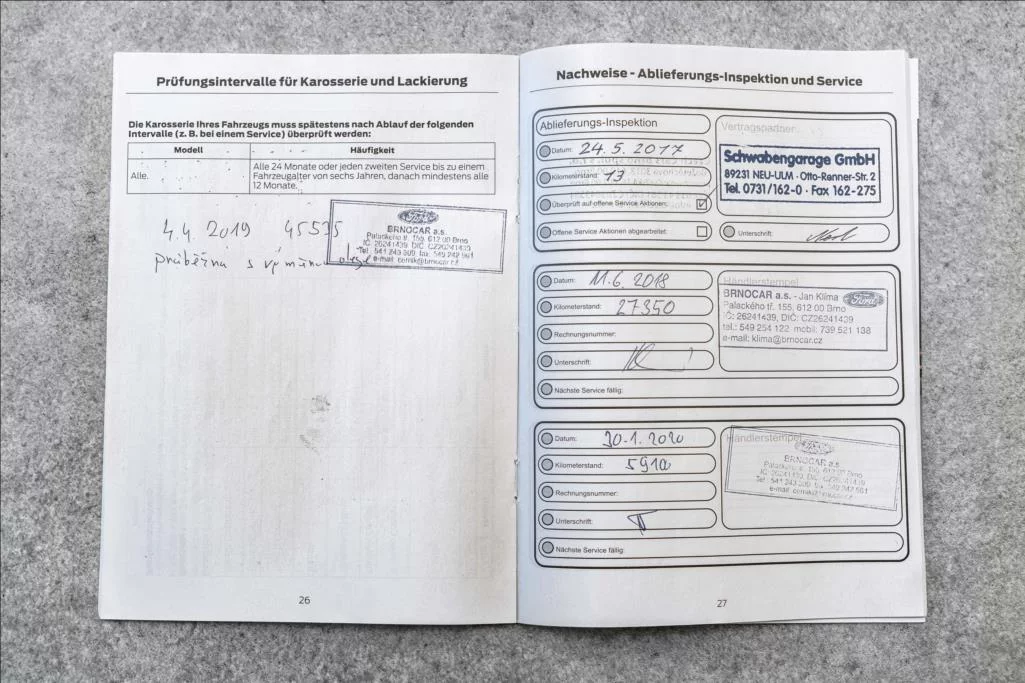 Prüfungsintervalle für Karosserie und Lackierung
Die Karosserie Ihres Fahrzeugs muss spätestens nach Ablauf der folgenden
Intervalle (z. B. bei einem Service) überprüft werden:
Modell Häufigkeit
Alle. Alle 24 Monate oder jeden zweiten Service bis zu einem
Fahrzeugalter von sechs Jahren, danach mindestens alle
12 Monate.
4.4. 2019 45535
průběžná s výměnou oleje
Ford
BRNOCAR a.s.
Palackého tř. 155, 612 00 Brno
IČ: 26241439, DIČ: CZ26241439
Tel.: 541 243 309, fax: 549 242 561
e-mail: cernik@brnocar.cz
26
Nachweise - Ablieferungs-Inspektion und Service
Ablieferungs-Inspektion
Datum: 24. 5. 2017
Kilometerstand: 13
Überprüft auf offene Service Aktionen:
Offene Service Aktionen abgearbeitet:
Vertragspartner
Schwabengarage GmbH
89231 NEU-ULM · Otto-Renner-Str. 2
Tel. 0731/162-0 · Fax 162-275
Unterschrift:
Datum: 11.6. 2018
Kilometerstand: 27350
Rechnungsnummer:
Unterschrift:
Nächste Service fällig:
Händlerstempel
BRNOCAR a.s. - Jan Klíma
Ford
Palackého tř. 155, 612 00 Brno
IČ: 26241439, DIČ: CZ26241439
tel.: 549 254 122 mobil: 739 521 138
e-mail: klima@brnocar.cz
Datum: 30.1. 2020
Kilometerstand:
Rechnungsnummer:
Unterschrift:
Nächste Service fällig:
Händlerstempel
Ford
BRNOCAR a.s.
Palackého tř. 155, 612 00 Brno
IČ: 26241439, DIČ: CZ26241439
Tel.: 541 243 309, fax: 549 242 561
e-mail: cernik@brnocar.cz
27